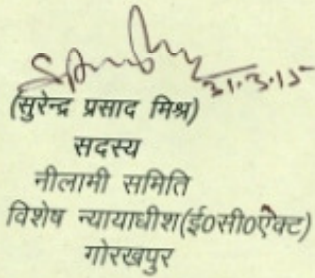 31.3.15
(सुरेन्द्र प्रसाद मिश्र)
सदस्य
नीलामी समिति
विशेष न्यायाधीश(ई०सी०ऐक्ट)
गोरखपुर